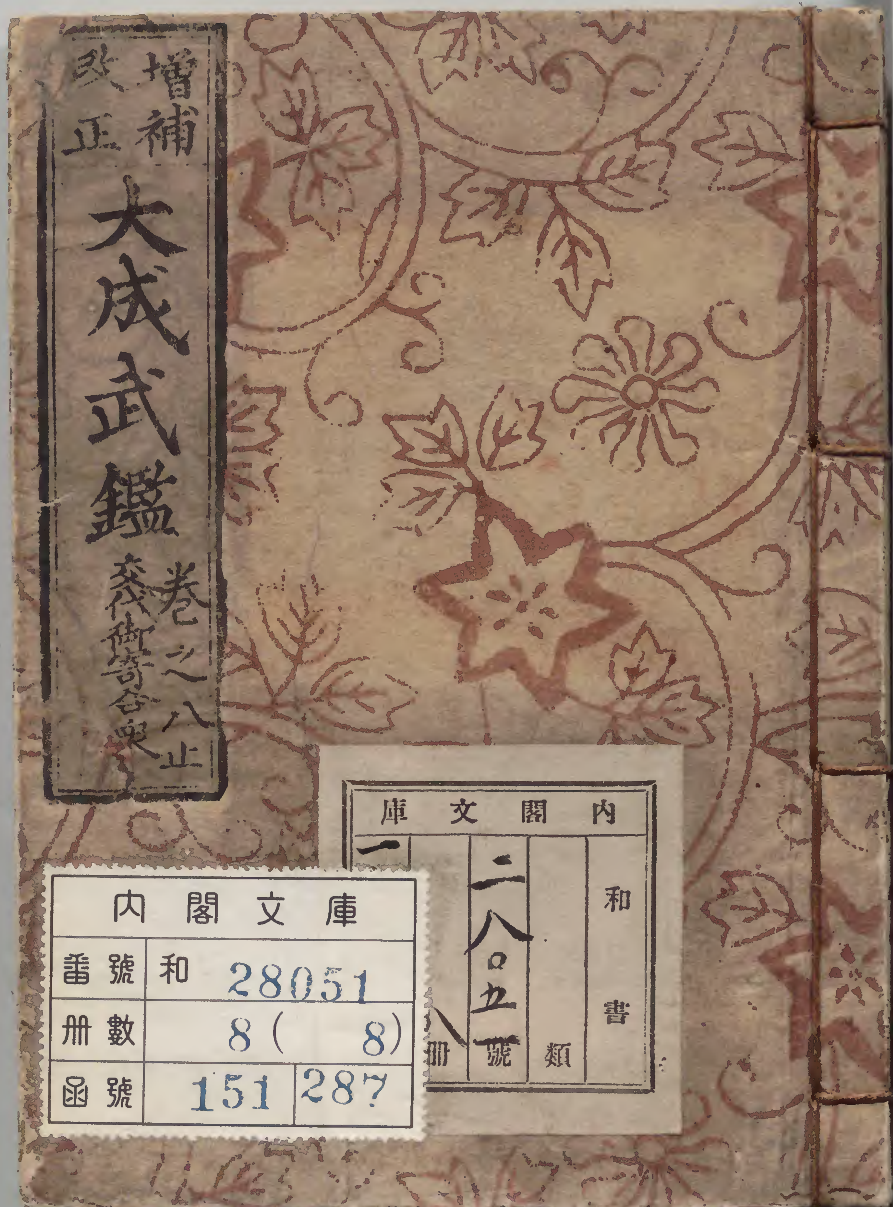 増補
改正
大成武鑑
巻之八止
御寄合衆
内閣文庫
和書
類
二八〇五一號
冊
一
内閣文庫
番號 和 28051
冊數 8 ( 8)
函號 151 287